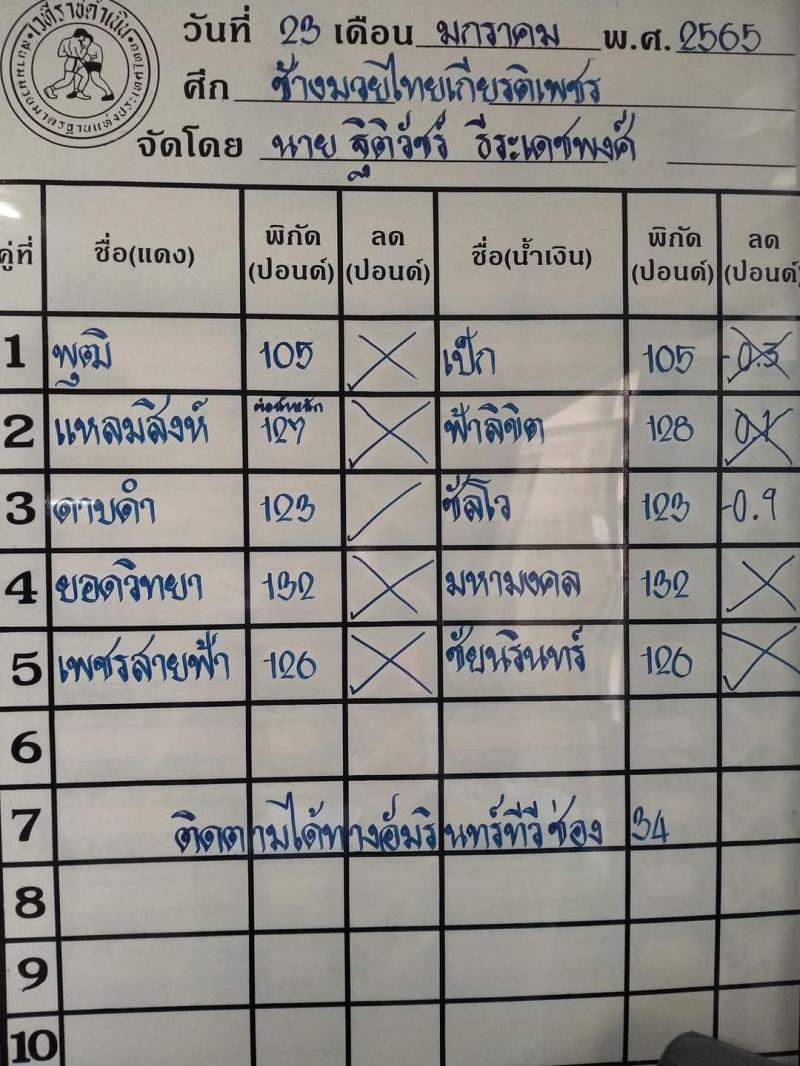 เวทีราชดำเนิน
สนามมวยมาตรฐานแห่งประเทศไทย
วันที่ 23 เดือน มกราคม พ.ศ. 2565
ศึก ช้างมวยไทยเกียรติเพชร
จัดโดย นาย ฐิติวัชร์ ธีระเดชพงศ์
คู่ที่ ชื่อ(แดง) พิกัด (ปอนด์) ลด (ปอนด์) ชื่อ(น้ำเงิน) พิกัด (ปอนด์) ลด (ปอนด์)
1 พุฒิ 105 เป๊ก 105 -0.3
2 แหลมสิงห์ ต่อน้ำหนัก 127 ฟ้าลิขิต 128 0.1
3 ดาบดำ 123 ซัลโว 123 -0.9
4 ยอดวิทยา 132 มหามงคล 132
5 เพชรสายฟ้า 126 ชัยนรินทร์ 126
6
7 ติดตามได้ทางอัมรินทร์ทีวี ช่อง 34
8
9
10